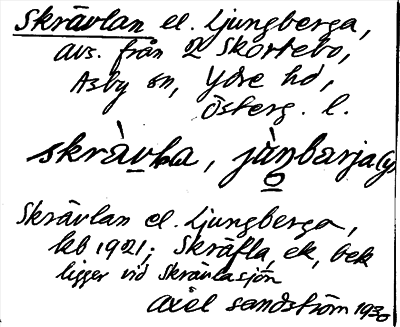 Skrävlan el. Ljungberga,
avs. från 2 Skortebo,
Asby sn, Ydre hd,
Österg. l.
skrä̀vḷa, jàṇbarja(y)
Skrävlan el. Ljungberga,
lkb 1921; Skräfla, ek, bek
ligger vid Skrävlasjön
Axel Sandström 1930